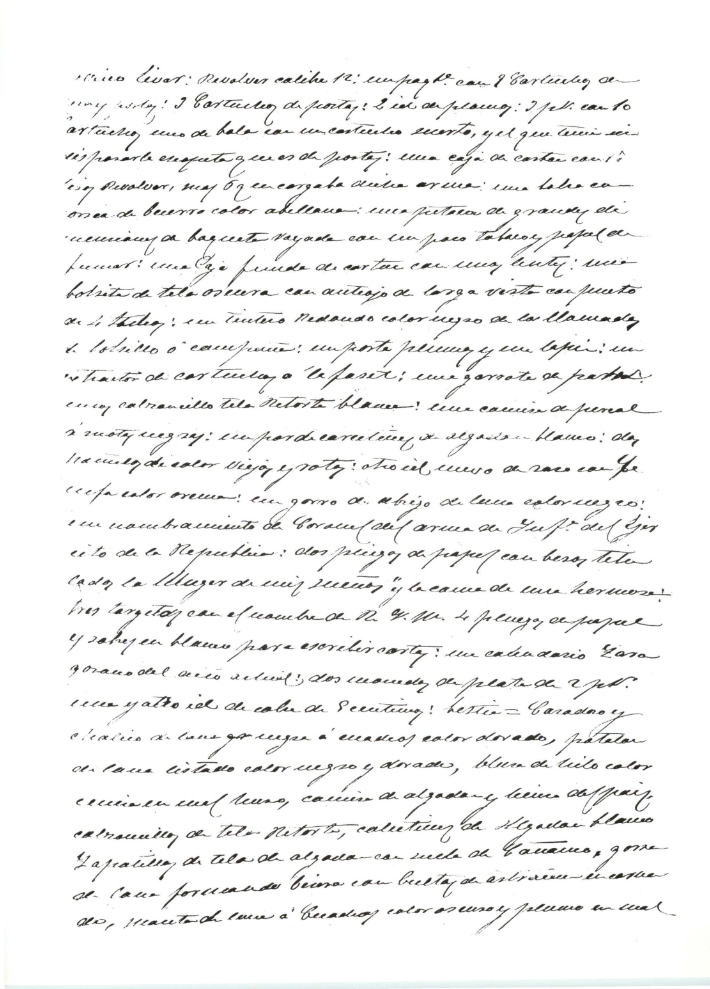 Revolver calibre 12: un paqte. con 8 Cartuchos de
3 Cartuchos de postas: 2 id de plomos: con 10
cartuchos uno de bala con un cartucho y el que tenia sin
dispararle que es de postas: una caja de carton con
Revolver, mas 6 q. en cargaba dicha arma: una
de becerro color abellana: una petaca de grandes di
menciones de baqueta rayada con un poco tabaco y papel de
fumar: una Caja funda de carton con unos lentes: una
bolsita de tela oscura con anteojo de larga vista con punto
de 4 un tintero Redondo color negro de los llamados
de bolsillo ó campaña: un porta plumas y un lapiz: un
extractor de cartuchos a la faset: una garrota de
unos calzoncillos tela Retorta blanca: una camisa de percal
á motas negras: un par de carcetines de algodon blanco: dos
pañuelos de color viejos y rotos: otro id. nuevo de raso con
color crema: un gorro de abrigo de lana color negro:
un nombramiento de Coronel del arma de Infa. del Ejer
cito de la Republica: dos pliegos de papel con besos titu
lados la Muger de mis sueños" y la cama de una hermosa:
tres targetas con el nombre de R. V. M. 4 pliegos de papel
y sobres en blanco para escribir cartas: un calendario Zara
gozano del año actual: dos monedas de plata de 2 pts.
una y otro id de cobre de 5 centimos: bestia = Casadoro y
chaleco de lana negra á cuadros color dorado, pantalon
de lana listado color negro y dorado, blusa de hilo color
ceniza en mal huso, camisa de algodon y lienzo del pais,
calzoncillos de tela Retorta, calcetines de Algodon blanco
Zapatillas de tela de algodon con suela de Cañamo, gorra
de lana formando boina con bueltas de astracan encarna
do, manta de lana á Cuadros color oscuro y plomo en mal